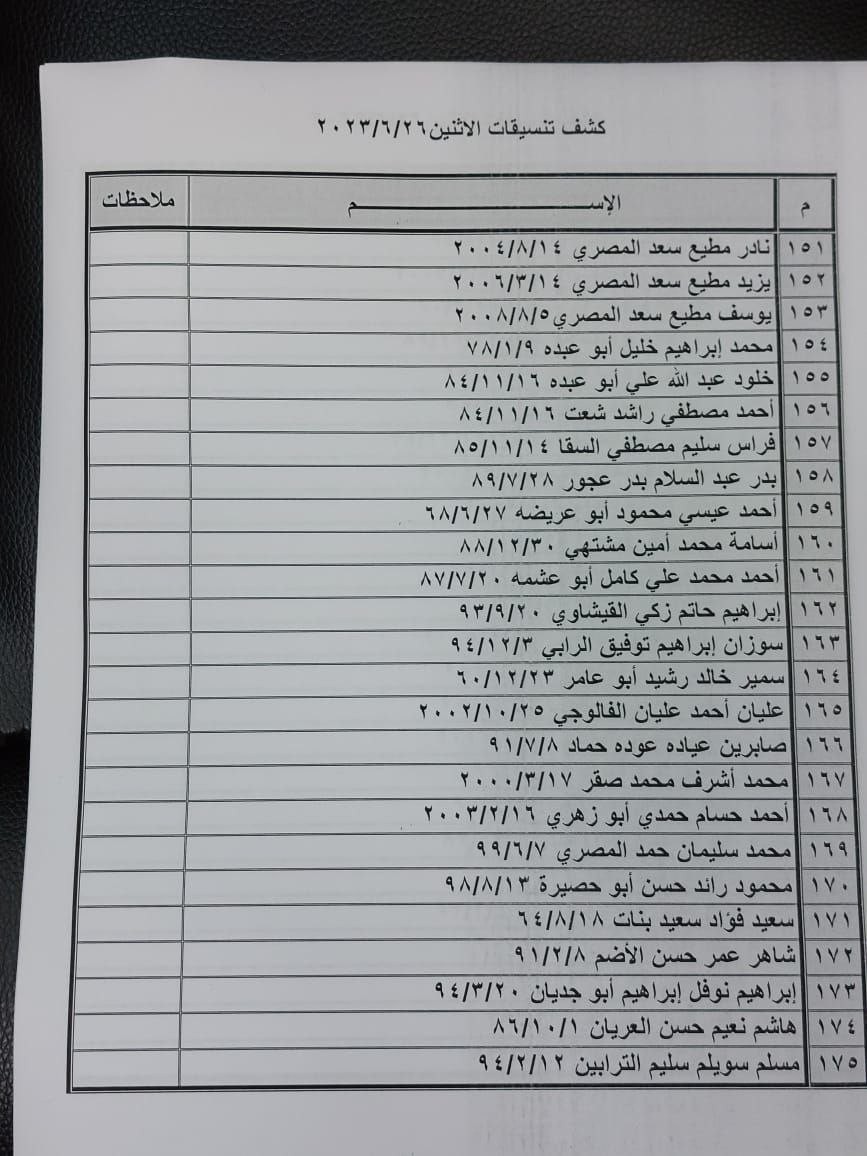 كشف تنسيقات الاثنين ٢٠٢٣/٦/٢٦
م الإســـــــــــــــــــم ملاحظات
١٥١ نادر مطيع سعد المصري ٢٠٠٤/٨/١٤
١٥٢ يزيد مطيع سعد المصري ٢٠٠٦/٣/١٤
١٥٣ يوسف مطيع سعد المصري ٢٠٠٨/٨/٥
١٥٤ محمد إبراهيم خليل أبو عبده ٧٨/١/٩
١٥٥ خلود عبد الله علي أبو عبده ٨٤/١١/١٦
١٥٦ أحمد مصطفي راشد شعت ٨٤/١١/١٦
١٥٧ فراس سليم مصطفي السقا ٨٥/١١/١٤
١٥٨ بدر عبد السلام بدر عجور ٨٩/٧/٢٨
١٥٩ أحمد عيسي محمود أبو عريضه ٦٨/٦/٢٧
١٦٠ أسامة محمد أمين مشتهي ٨٨/١٢/٣٠
١٦١ أحمد محمد علي كامل أبو عشمه ٨٧/٧/٢٠
١٦٢ إبراهيم حاتم زكي القيشاوي ٩٣/٩/٢٠
١٦٣ سوزان إبراهيم توفيق الرابي ٩٤/١٢/٣
١٦٤ سمير خالد رشيد أبو عامر ٦٠/١٢/٢٣
١٦٥ عليان أحمد عليان الفالوجي ٢٠٠٢/١٠/٢٥
١٦٦ صابرين عياده عوده حماد ٩١/٧/٨
١٦٧ محمد أشرف محمد صقر ٢٠٠٠/٣/١٧
١٦٨ أحمد حسام حمدي أبو زهري ٢٠٠٣/٢/١٦
١٦٩ محمد سليمان حمد المصري ٩٩/٦/٧
١٧٠ محمود رائد حسن أبو حصيرة ٩٨/٨/١٣
١٧١ سعيد فؤاد سعيد بنات ٦٤/٨/١٨
١٧٢ شاهر عمر حسن الأضم ٩١/٢/٨
١٧٣ إبراهيم نوفل إبراهيم أبو جديان ٩٤/٣/٢٠
١٧٤ هاشم نعيم حسن العريان ٨٦/١٠/١
١٧٥ مسلم سويلم سليم الترابين ٩٤/٢/١٢